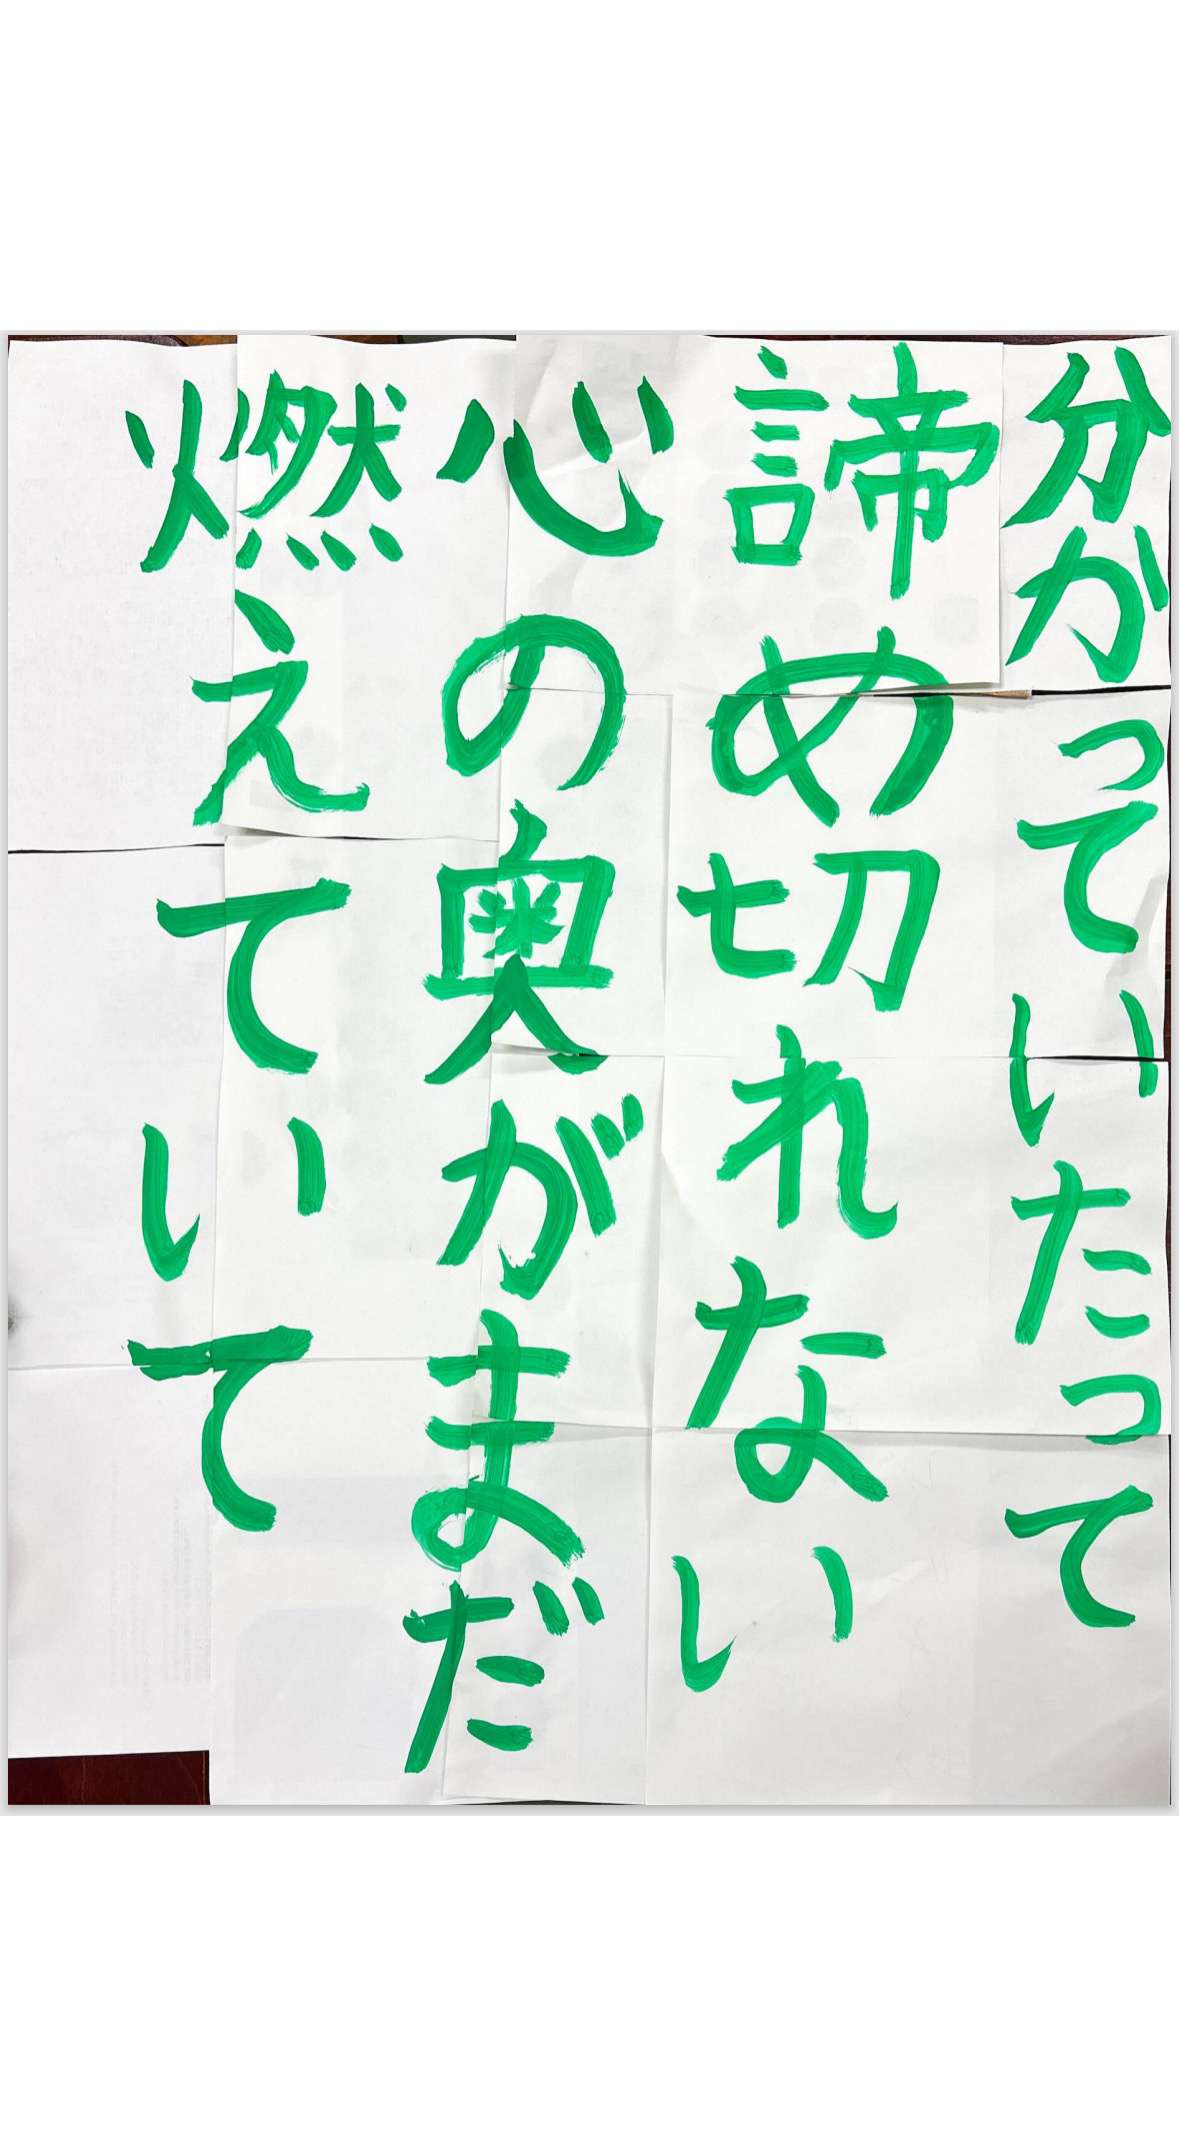 分かっていたって
諦め切れない
心の奥がまだ
燃えていて